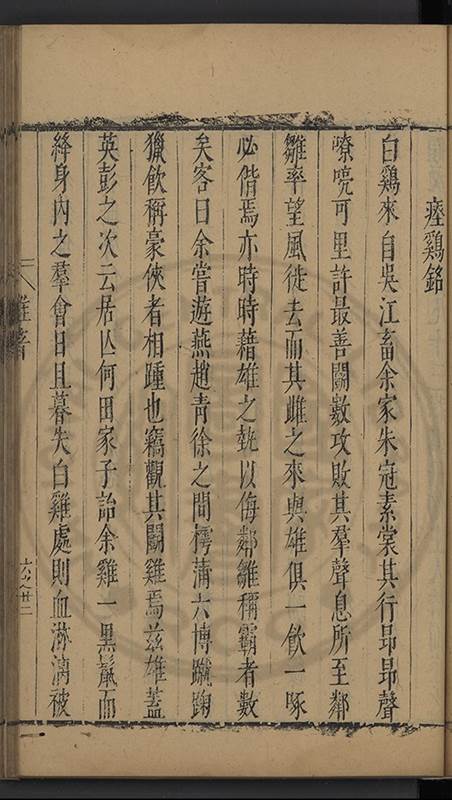 瘞鷄銘
白鷄來自吳江畜余家朱冠素裳其行昻昻聲
嘹喨可里許最善鬭數攻敗其羣聲息所至鄰
雛率望風徙去而其雌之來與雄俱一飲一啄
必偕焉亦時時藉雄之埶以侮鄰雛稱霸者數
矣客曰余嘗遊燕趙靑徐之間樗蒲六博蹴踘
獵飲稱豪俠者相踵也竊觀其鬭雞焉兹雄蓋
英彭之次云居亾何田家子詒余雞一黑鬣而
絳身內之羣會日且暮失白雞處則血淋漓被
雜著
六之廿二